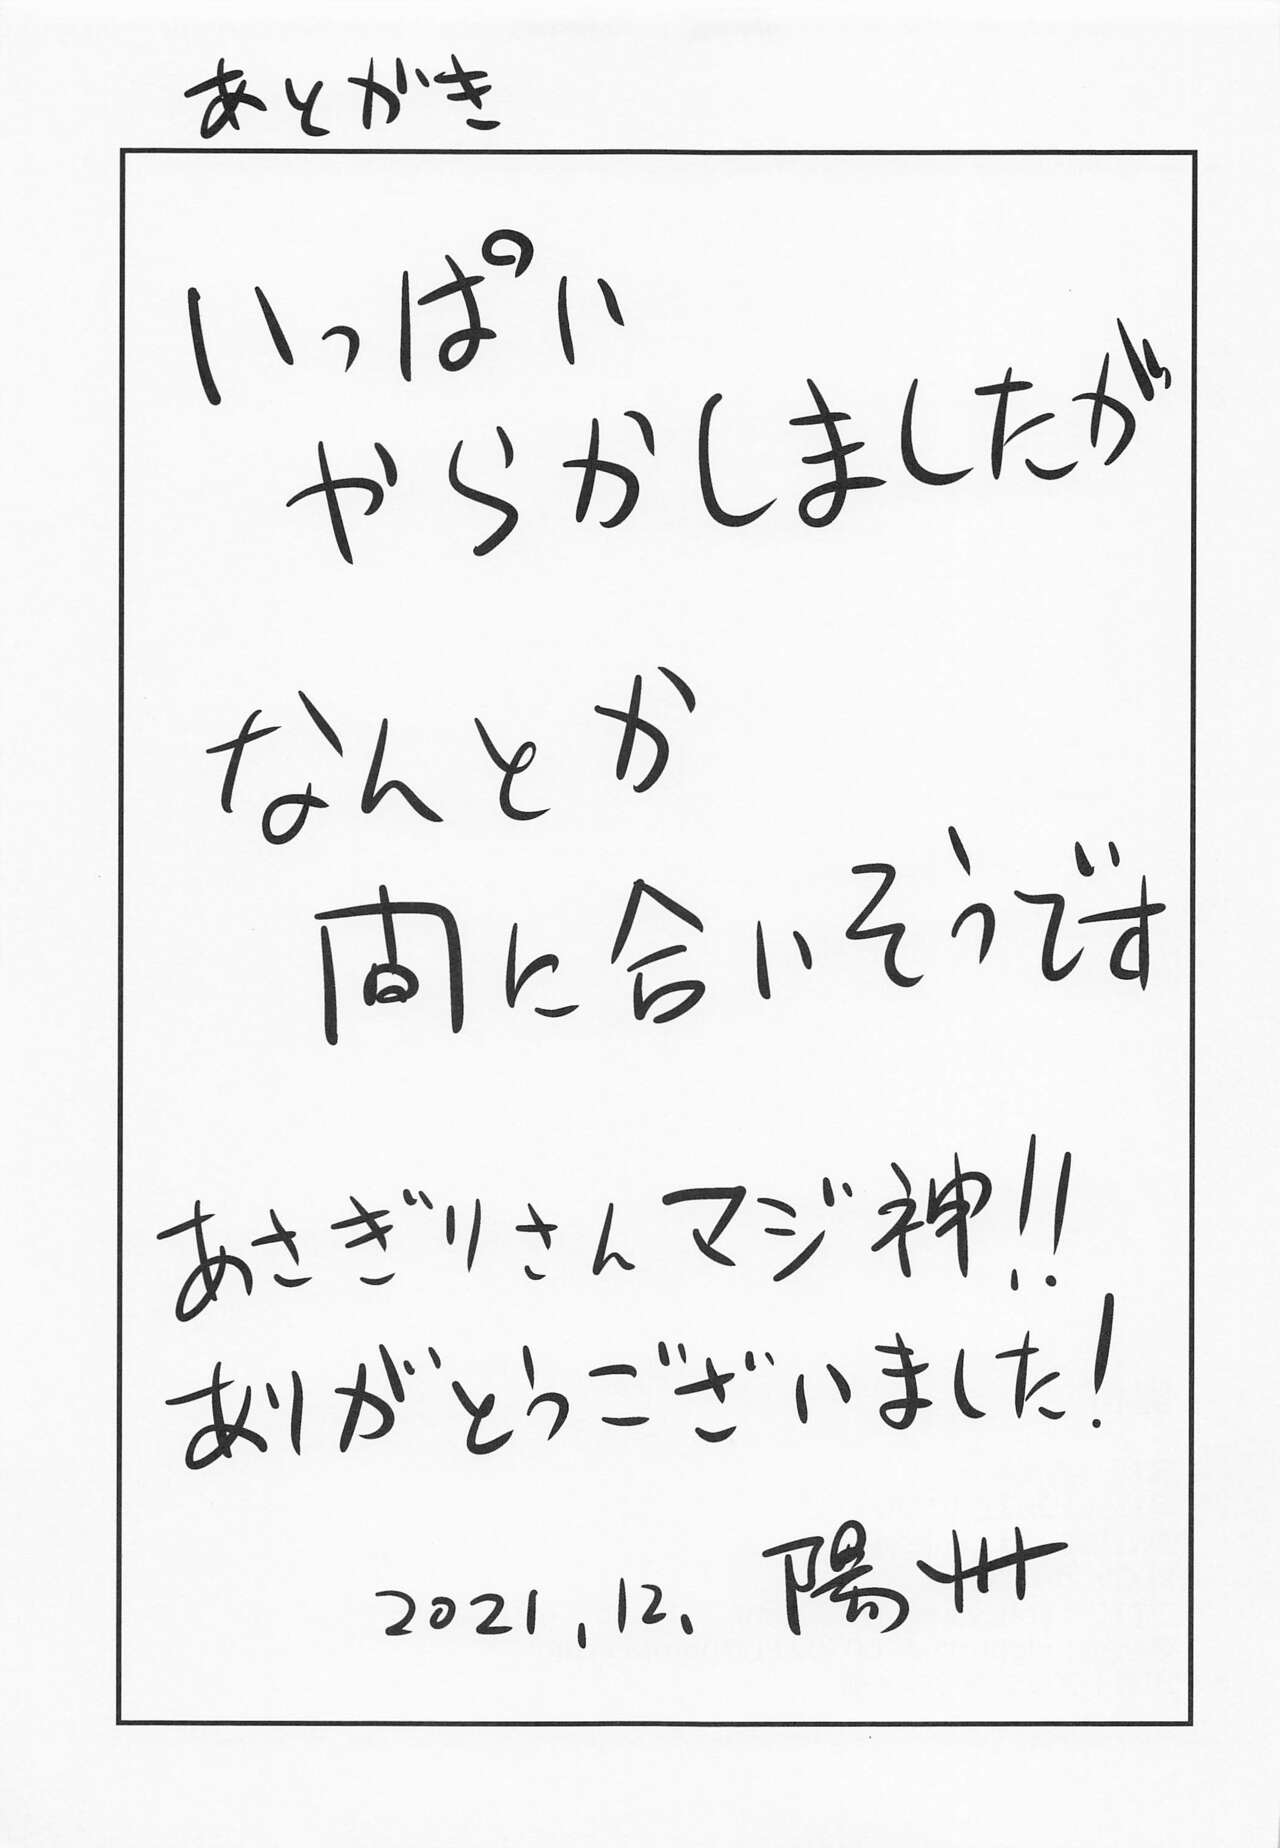 あとがき
いっぱい
やらかしましたが
なんとか
間に合いそうです
あさぎりさんマジ神!!
ありがとうございました!
2021.12. 陽州